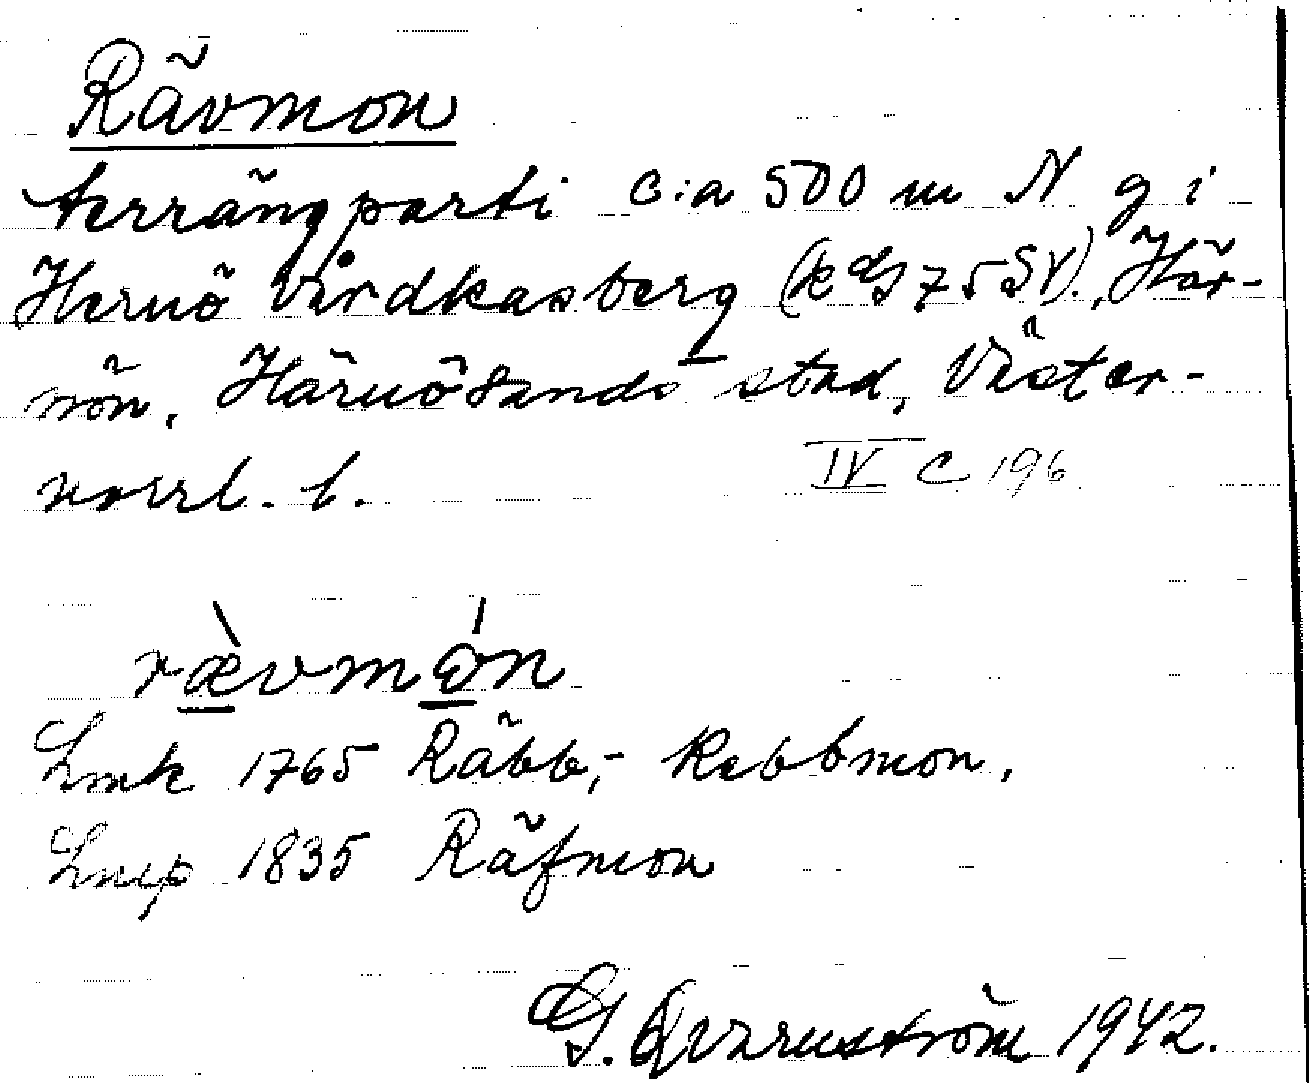 Rävmon
terrängparti c:a 500 m N g i
Hernö Vårdkasberg (k G 75 SV)., Här-
nön, Härnösands stad, Väster-
norrl. l.
IV C 196
rævmón
Lmk 1765 Räbb,- Rebbmon,
Lmp 1835 Räfmon
G. Qvarnström 1942.